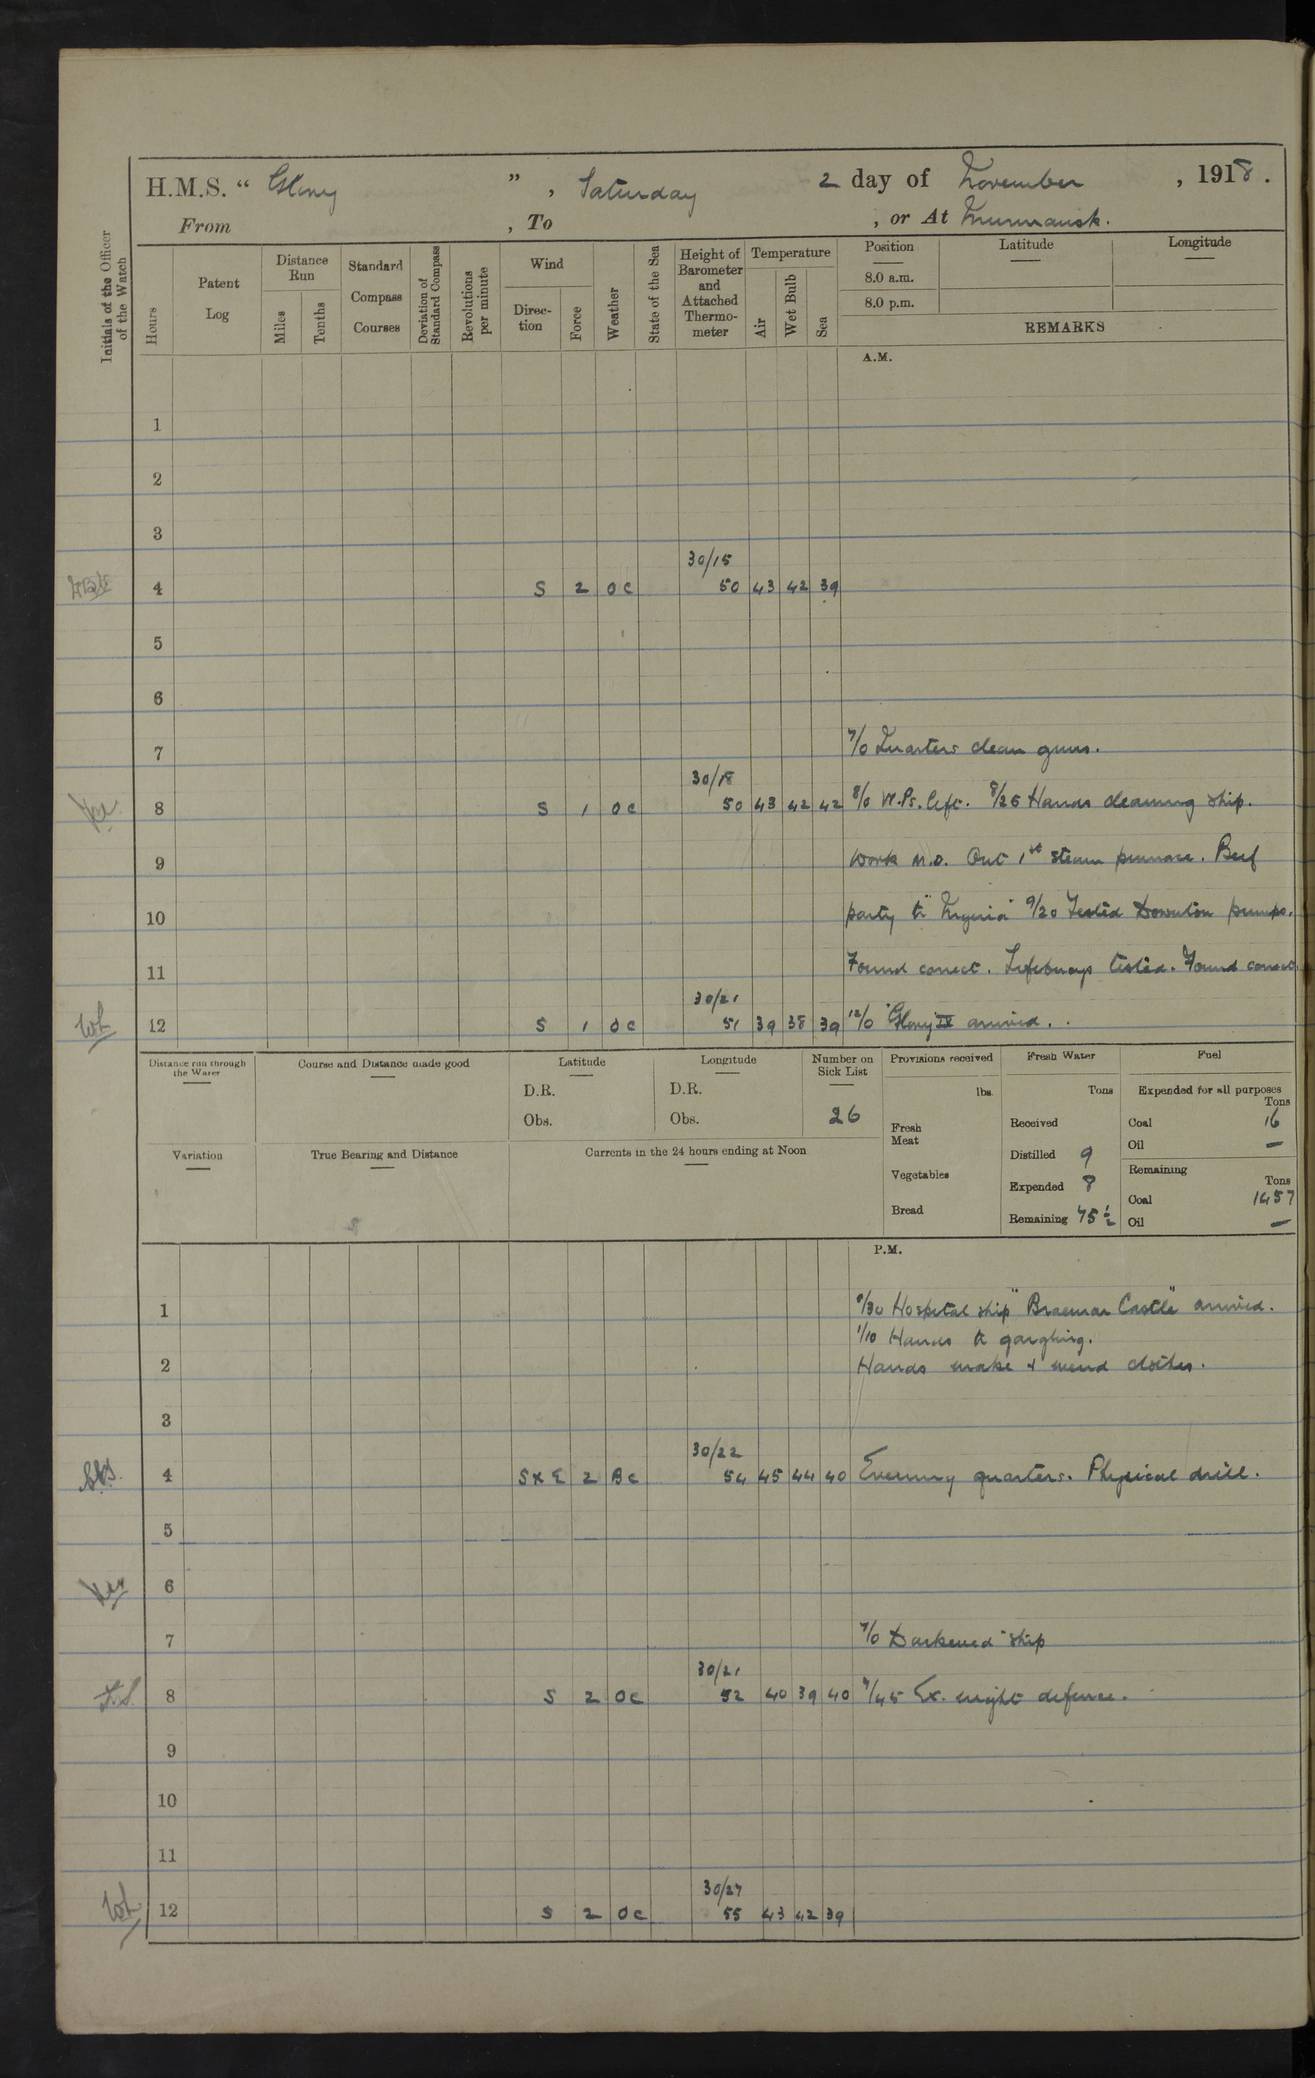 H.M.S. “ Glory ” , Saturday 2 day of November , 1918 .
From , To , or At Murmansk.
Initials of the Officer of the Watch
Hours
Patent Log
Distance Run
Miles
Tenths
Standard Compass Courses
Deviation of Standard Compass
Revolutions per minute
Wind
Direction
Force
Weather
State of the Sea
Height of Barometer and Attached Thermometer
Temperature
Air
Wet Bulb
Sea
Position
8.0 a.m.
8.0 p.m.
Latitude
Longitude
REMARKS
A.M.
1
2
3
30/15
4 S 2 oc 50 43 42 39
5
6
7 7/0 Quarters clean guns.
30/18
8 S 1 oc 50 43 42 42 8/0 W.Ps. left. 8/25 Hands cleaning ship.
9 Work M.O. Out 1st steam pinnace. Beef
10 party to "Virginia" 9/20 Tested Downton pumps.
11 Found correct. Lifebuoys tested. Found correct
30/21
12 S 1 oc 51 39 38 39 12/0 "Glory IV" arrived.
Distance run through the Water
Course and Distance made good
Latitude
D.R.
Obs.
Longitude
D.R.
Obs.
Number on Sick List
26
Provisions received
lbs.
Fresh Meat
Vegetables
Bread
Fresh Water
Tons
Received
Distilled 9
Expended 8
Remaining 75½
Fuel
Expended for all purposes
Tons
Coal 16
Oil —
Remaining
Tons
Coal 1457
Oil —
Variation
True Bearing and Distance
Currents in the 24 hours ending at Noon
P.M.
1 0/30 Hospital ship "Braemar Castle" arrived.
1/10 Hands to gargling.
2 Hands make & mend clothes.
3
30/22
4 SxE 2 Bc 54 45 44 40 Evening quarters. Physical drill.
5
6
7 7/0 Darkened ship
30/21
8 S 2 oc 52 40 39 40 7/45 Ex. night defence.
9
10
11
30/27
12 S 2 oc 55 43 42 39